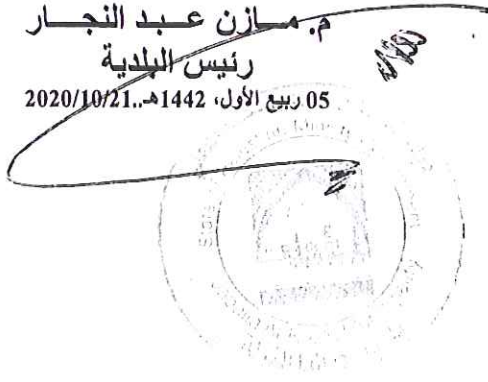 م. مــازن عــبد النجــار
رئيس البلدية
05 ربيع الأول، 1442هـ..2020/10/21